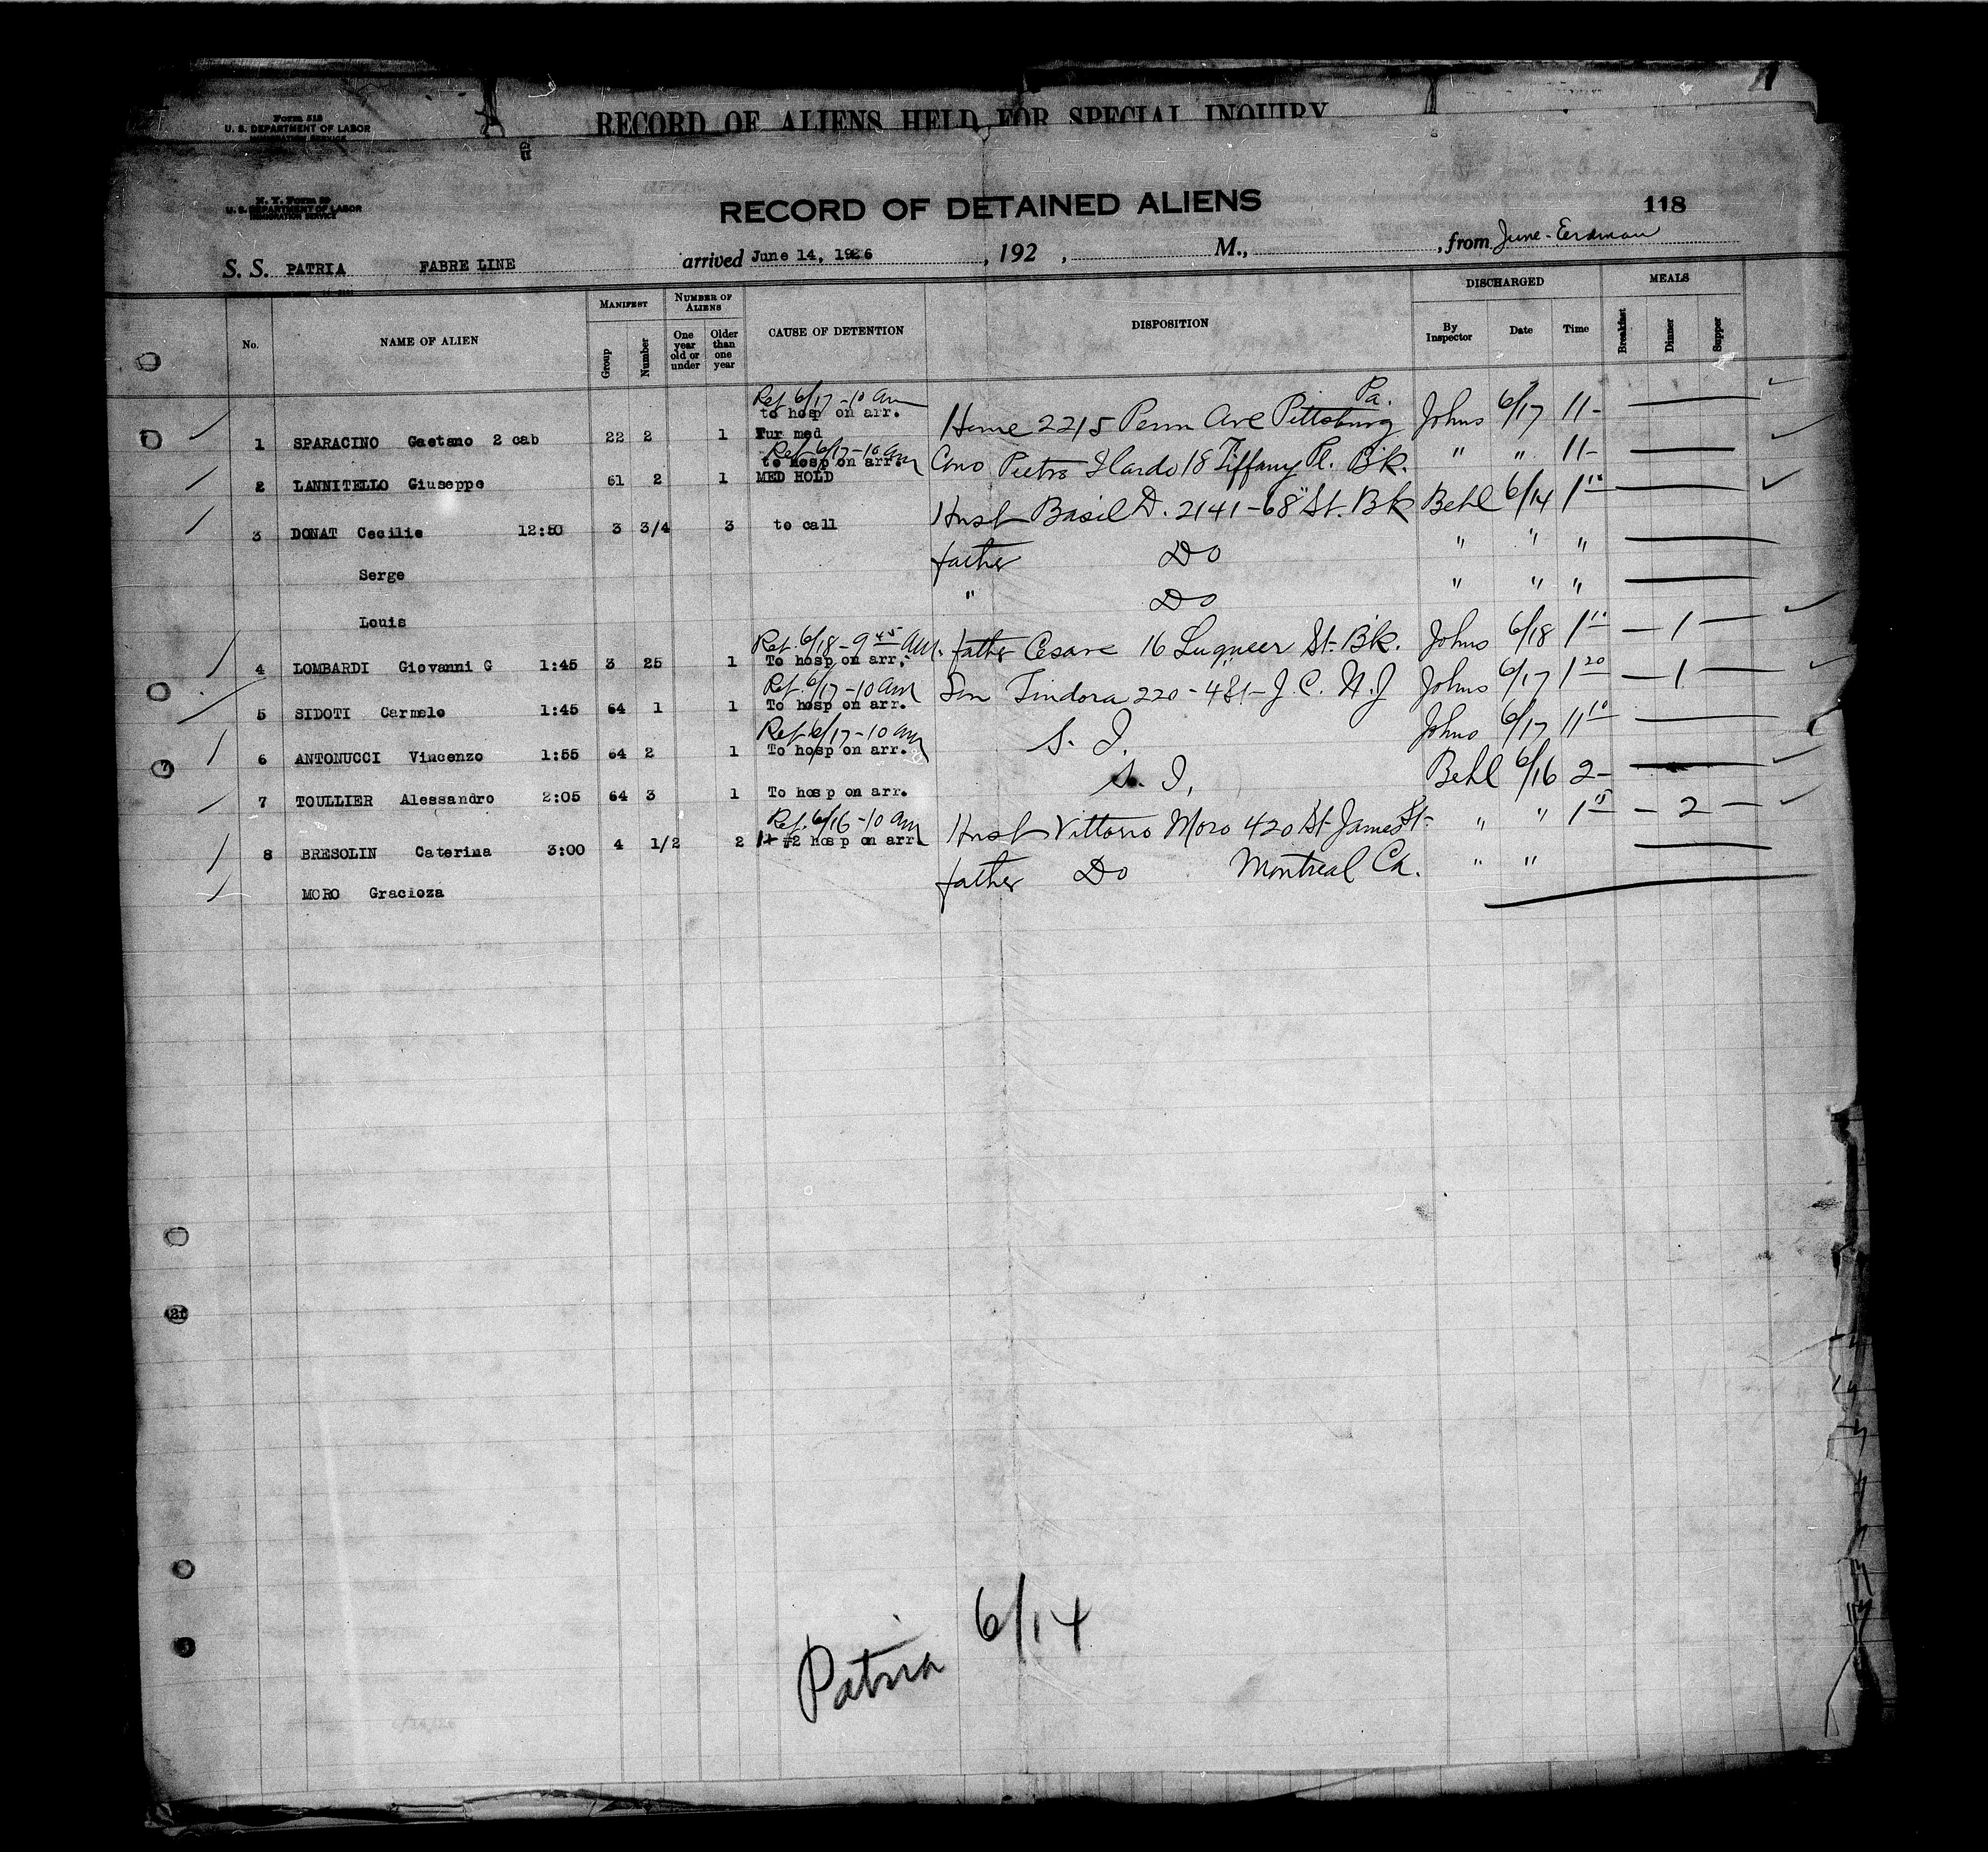 Form 518
U. S. DEPARTMENT OF LABOR
IMMIGRATION SERVICE
RECORD OF ALIENS HELD FOR SPECIAL INQUIRY
N. Y. Form 29
U. S. DEPARTMENT OF LABOR
IMMIGRATION SERVICE
RECORD OF DETAINED ALIENS
118
S. S. PATRIA FABRE LINE arrived June 14, 1926 , 192 , M., , from June-Eerdman
No. NAME OF ALIEN MANIFEST Group Number NUMBER OF ALIENS One year old or under Older than one year CAUSE OF DETENTION DISPOSITION DISCHARGED By Inspector Date Time MEALS Breakfast Dinner Supper
Ref 6/17-10 am
to hosp on arr.
1 SPARACINO Gaetano 2 cab 22 2 1 Fur med Home 2215 Penn Ave Pittsburg Pa. Johns 6/17 11-
Ref 6/17-10 am
to hosp on arr.
2 LANNITELLO Giuseppe 61 2 1 MED HOLD Cono Pietro Ilardo 18 Tiffany Pl. Bk. " " 11-
3 DONAT Cecilie 12:50 3 3/4 3 to call Husb Basil D. 2141-68" St. Bk Behl 6/14 1 10
Serge father Do " " "
Louis " Do " " "
Ref. 6/18-9 45 am.
4 LOMBARDI Giovanni G 1:45 3 25 1 To hosp on arr. father Cesare 16 Luqueer St- Bk. Johns 6/18 1 10 - 1 -
Ref. 6/17-10 am
5 SIDOTI Carmelo 1:45 64 1 1 To hosp on arr. Son Tindora 220-4 St- J. C. N. J Johns 6/17 1 20 - 1 -
Ref 6/17-10 am
6 ANTONUCCI Vincenzo 1:55 64 2 1 To hosp on arr. S. I. Johns 6/17 11 10
7 TOULLIER Alessandro 2:05 64 3 1 To hosp on arr. S. I. Behl 6/16 2-
Ref. 6/16-10 am
8 BRESOLIN Caterina 3:00 4 1/2 2 #2 hosp on arr Husb Vittorio Moro 420 St James St- " " 1 15 - 2 -
MORO Gracioza father Do Montreal Ca. " "
Patria 6/14